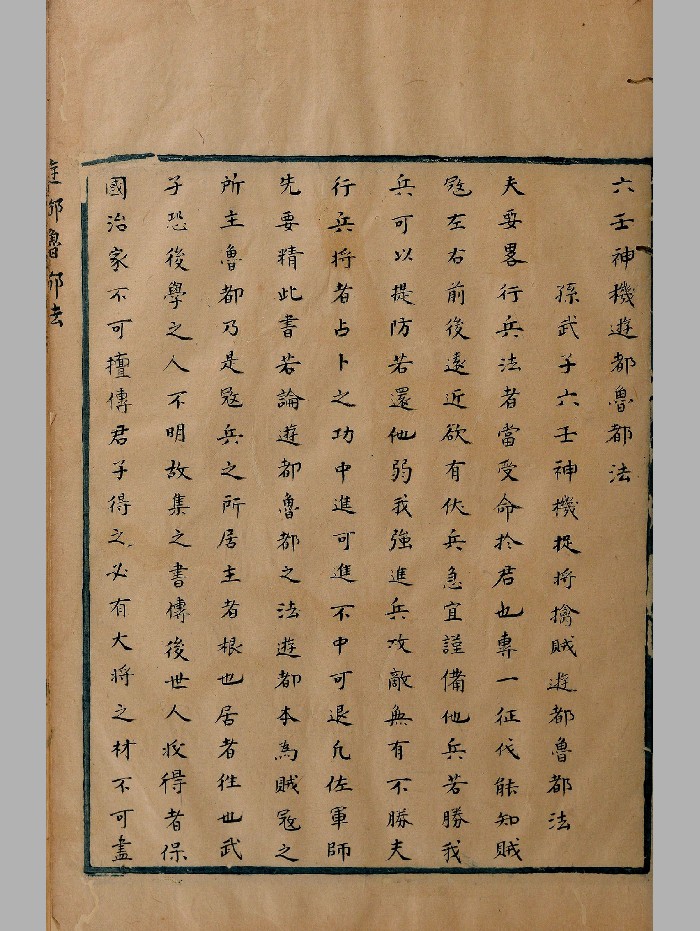 六壬神機遊都魯都法
孫武子六壬神機捉将擒賊遊都魯都法
夫要畧行兵法者當受命於君也專一征伐能知賊
宼左右前後遠近欲有伏兵急宜謹備他兵若勝我
兵可以提防若還他弱我強進兵攻敵無有不勝夫
行兵将者占卜之功中進可進不中可退凡佐軍師
先要精此書若論遊都魯都之法遊都本為賊宼之
所主魯都乃是宼兵之所居主者根也居者往也武
子恐後學之人不明故集之書傳後世人收得者保
國治家不可擅傳君子得之必有大将之材不可盡
遊都魯都法